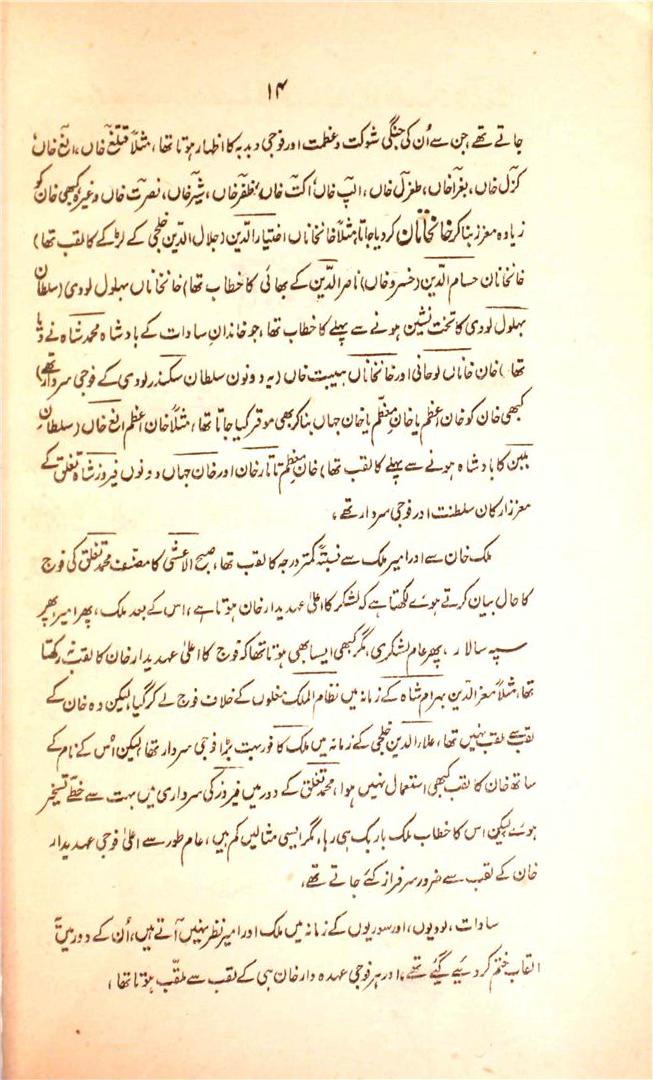 ۱۴
جاتے تھے، جن سے اُن کی جنگی شوکت و عظمت اور فوجی دبدبہ کا اظہار ہوتا تھا، مثلاً قتلغ خاں، الغ خاں
کزل خاں، بغرا خاں، طغرل خاں، الپ خاں اکت خاں، ظفر خاں، شیر خاں، نصرت خاں وغیرہ کبھی خان کو
زیادہ معزز بنا کر خانخانان کر دیا جاتا، مثلاً خانخاناں اختیار الدین (جلال الدین خلجی کے لڑکے کا لقب تھا)
خانخانان حسام الدین (خسرو خاں) ناصر الدین کے بھائی کا خطاب تھا) خانخاناں بہلول لودی (سلطان
بہلول لودی کا تخت نشین ہونے سے پہلے کا خطاب تھا، جو خاندانِ سادات کے بادشاہ محمد شاہ نے دیا
تھا) خان خاناں لوحانی اور خانخاناں ہیبت خاں (یہ دونوں سلطان سکندر لودی کے فوجی سردار تھے)
کبھی خان کو خان اعظم یا خانِ معظّم یا خان جہاں بنا کر بھی موقر کیا جاتا تھا، مثلاً خان اعظم الغ خاں (سلطان
بلبن کا بادشاہ ہونے سے پہلے کا لقب تھا) خان معظم تاتار خان اور خان جہاں دونوں فیروز شاہ تغلق کے
معزز ارکان سلطنت اور فوجی سردار تھے،
ملک خان سے اور امیر ملک سے نسبتہً کمتر درجہ کا لقب تھا، صبح الاعشی کا مصنف محمد تغلق کی فوج
کا حال بیان کرتے ہوئے لکھتا ہے کہ لشکر کا اعلیٰ عہدیدار خان ہوتا ہے، اس کے بعد ملک، پھر امیر پھر
سپہ سالار، پھر عام لشکری، مگر کبھی ایسا بھی ہوتا تھا کہ فوج کا اعلیٰ عہدیدار خان کا لقب نہ رکھتا
تھا، مثلاً معز الدین بہرام شاہ کے زمانہ میں نظام الملک مغلوں کے خلاف فوج لے کر گیا، لیکن وہ خان کے
لقب سے ملقب نہیں تھا، علاء الدین خلجی کے زمانہ میں ملک کافور بہت بڑا فوجی سردار تھا لیکن اُس کے نام کے
ساتھ خان کا لقب کبھی استعمال نہیں ہوا، محمد تغلق کے دور میں فیروز کی سرداری میں بہت سے خطّے تسخیر
ہوئے لیکن اس کا خطاب ملک باربک ہی رہا، مگر ایسی مثالیں کم ہیں، عام طور سے اعلیٰ فوجی عہدیدار
خان کے لقب سے ضرور سرفراز کئے جاتے تھے،
سادات، لودیوں، اور سوریوں کے زمانہ میں ملک اور امیر نظر نہیں آتے ہیں، اُن کے دور میں یہ
القاب ختم کر دیئے گئے تھے، اور ہر فوجی عہدہ دار خان ہی کے لقب سے ملقّب ہوتا تھا،